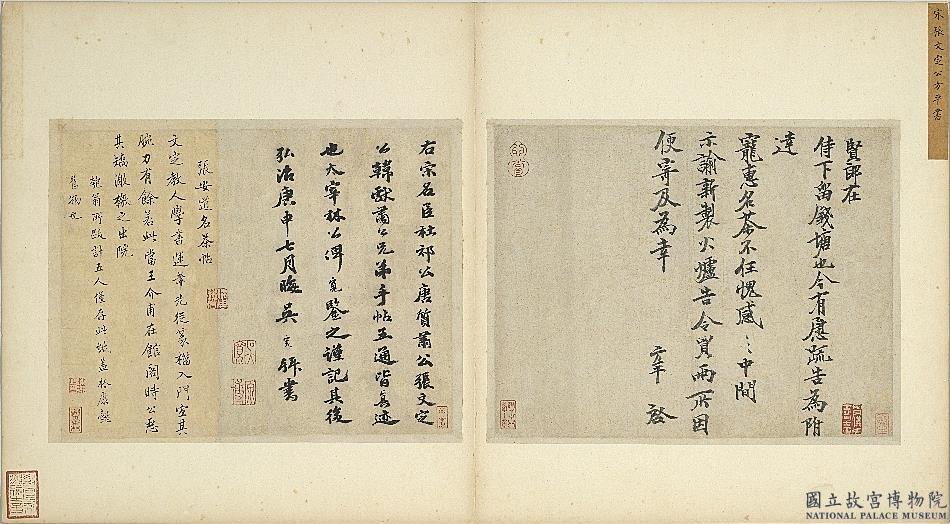 宋張文定公方平書
賢郎在
侍下留錢塘也今有慰疏告為附
達
寵惠名茶不任愧感〻中間
示諭新製火爐告令買兩所因
便寄及為幸 方平 啟
右宋名臣杜祁公唐質肅公張文定
公韓獻肅公兄弟手帖五通皆真迹
也太宰林公俾寬鑒之謹記其後
弘治庚申七月晦吳寬書
張安道名茶帖
文定教人學書運筆先從篆籀入門宜其
腕力有餘若此當王介甫在館閣時公惡
其矯激檄之出院
匏翁所跋計五人僅存此
舊物也
國立故宮博物院
NATIONAL PALACE MUSEUM